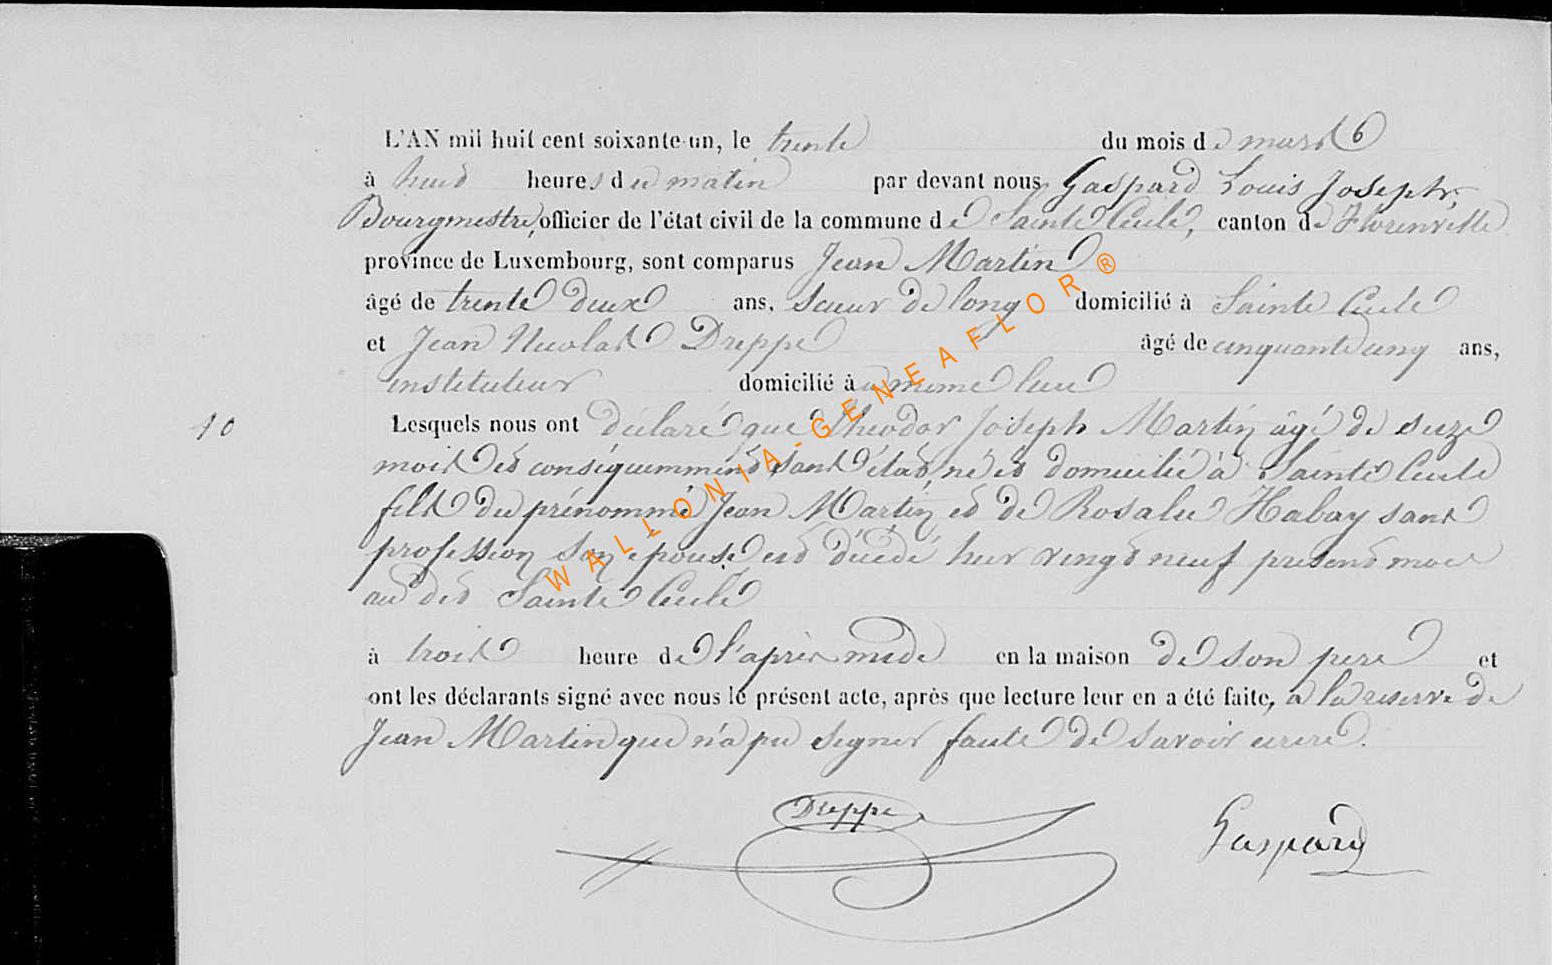 L'AN mil huit cent soixante-un, le trente du mois de mars
à huit heures du matin par devant nous Gaspard Louis Joseph,
Bourgmestre, officier de l'état civil de la commune de Sainte Cecile, canton de Florenville
province de Luxembourg, sont comparus Jean Martin
âgé de trente deux ans, scieur de long domicilié à Sainte Cecile
et Jean Nicolas Dreppe âgé de cinquante cinq ans,
instituteur domicilié à même lieu
10 Lesquels nous ont déclaré que Théodor Joseph Martin âgé de seize
mois et conséquemment sans état, né et domicilié à Sainte Cecile
fils du prénommé Jean Martin et de Rosalie Habay sans
profession son épouse est décédé hier vingt neuf présent mois
au dit Sainte Cecile
à trois heure de l'après midi en la maison de son pere et
ont les déclarants signé avec nous le présent acte, après que lecture leur en a été faite, a la reserve de
Jean Martin qui n'a pu signer faute de savoir ecrire.
Dreppe Gaspard
WALLONIA-GENEAFLOR®